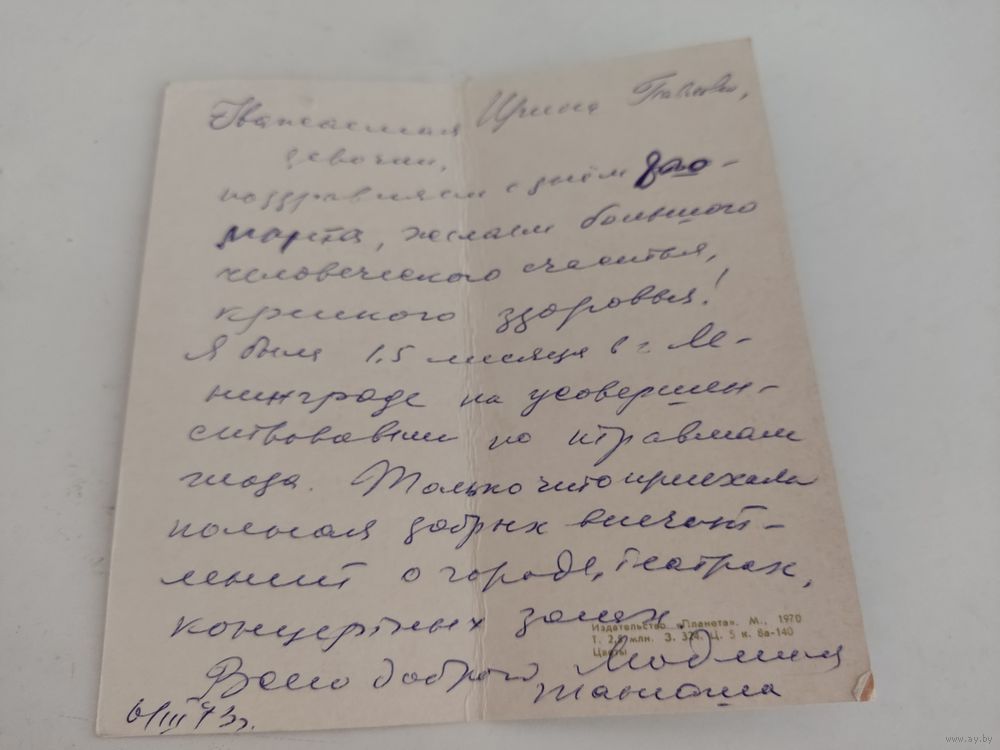 Уважаемая Ирина Павловна,
девочки,
поздравляем с днём 8го
марта, желаем большого
человеческого счастья,
крепкого здоровья!
Я была 1,5 месяца в г Ле-
нинграде на усовершен-
ствовании по травмам
глаза. Только что приехала
полная добрых впечат-
лений о городе, театрах,
концертных залах.
Издательство «Планета». М., 1970
Т. 2,5 млн. З. 324. Ц. 5 к. 8а-140
Цветы
Всего доброго Людмила
6/III 73г.
www.ay.by